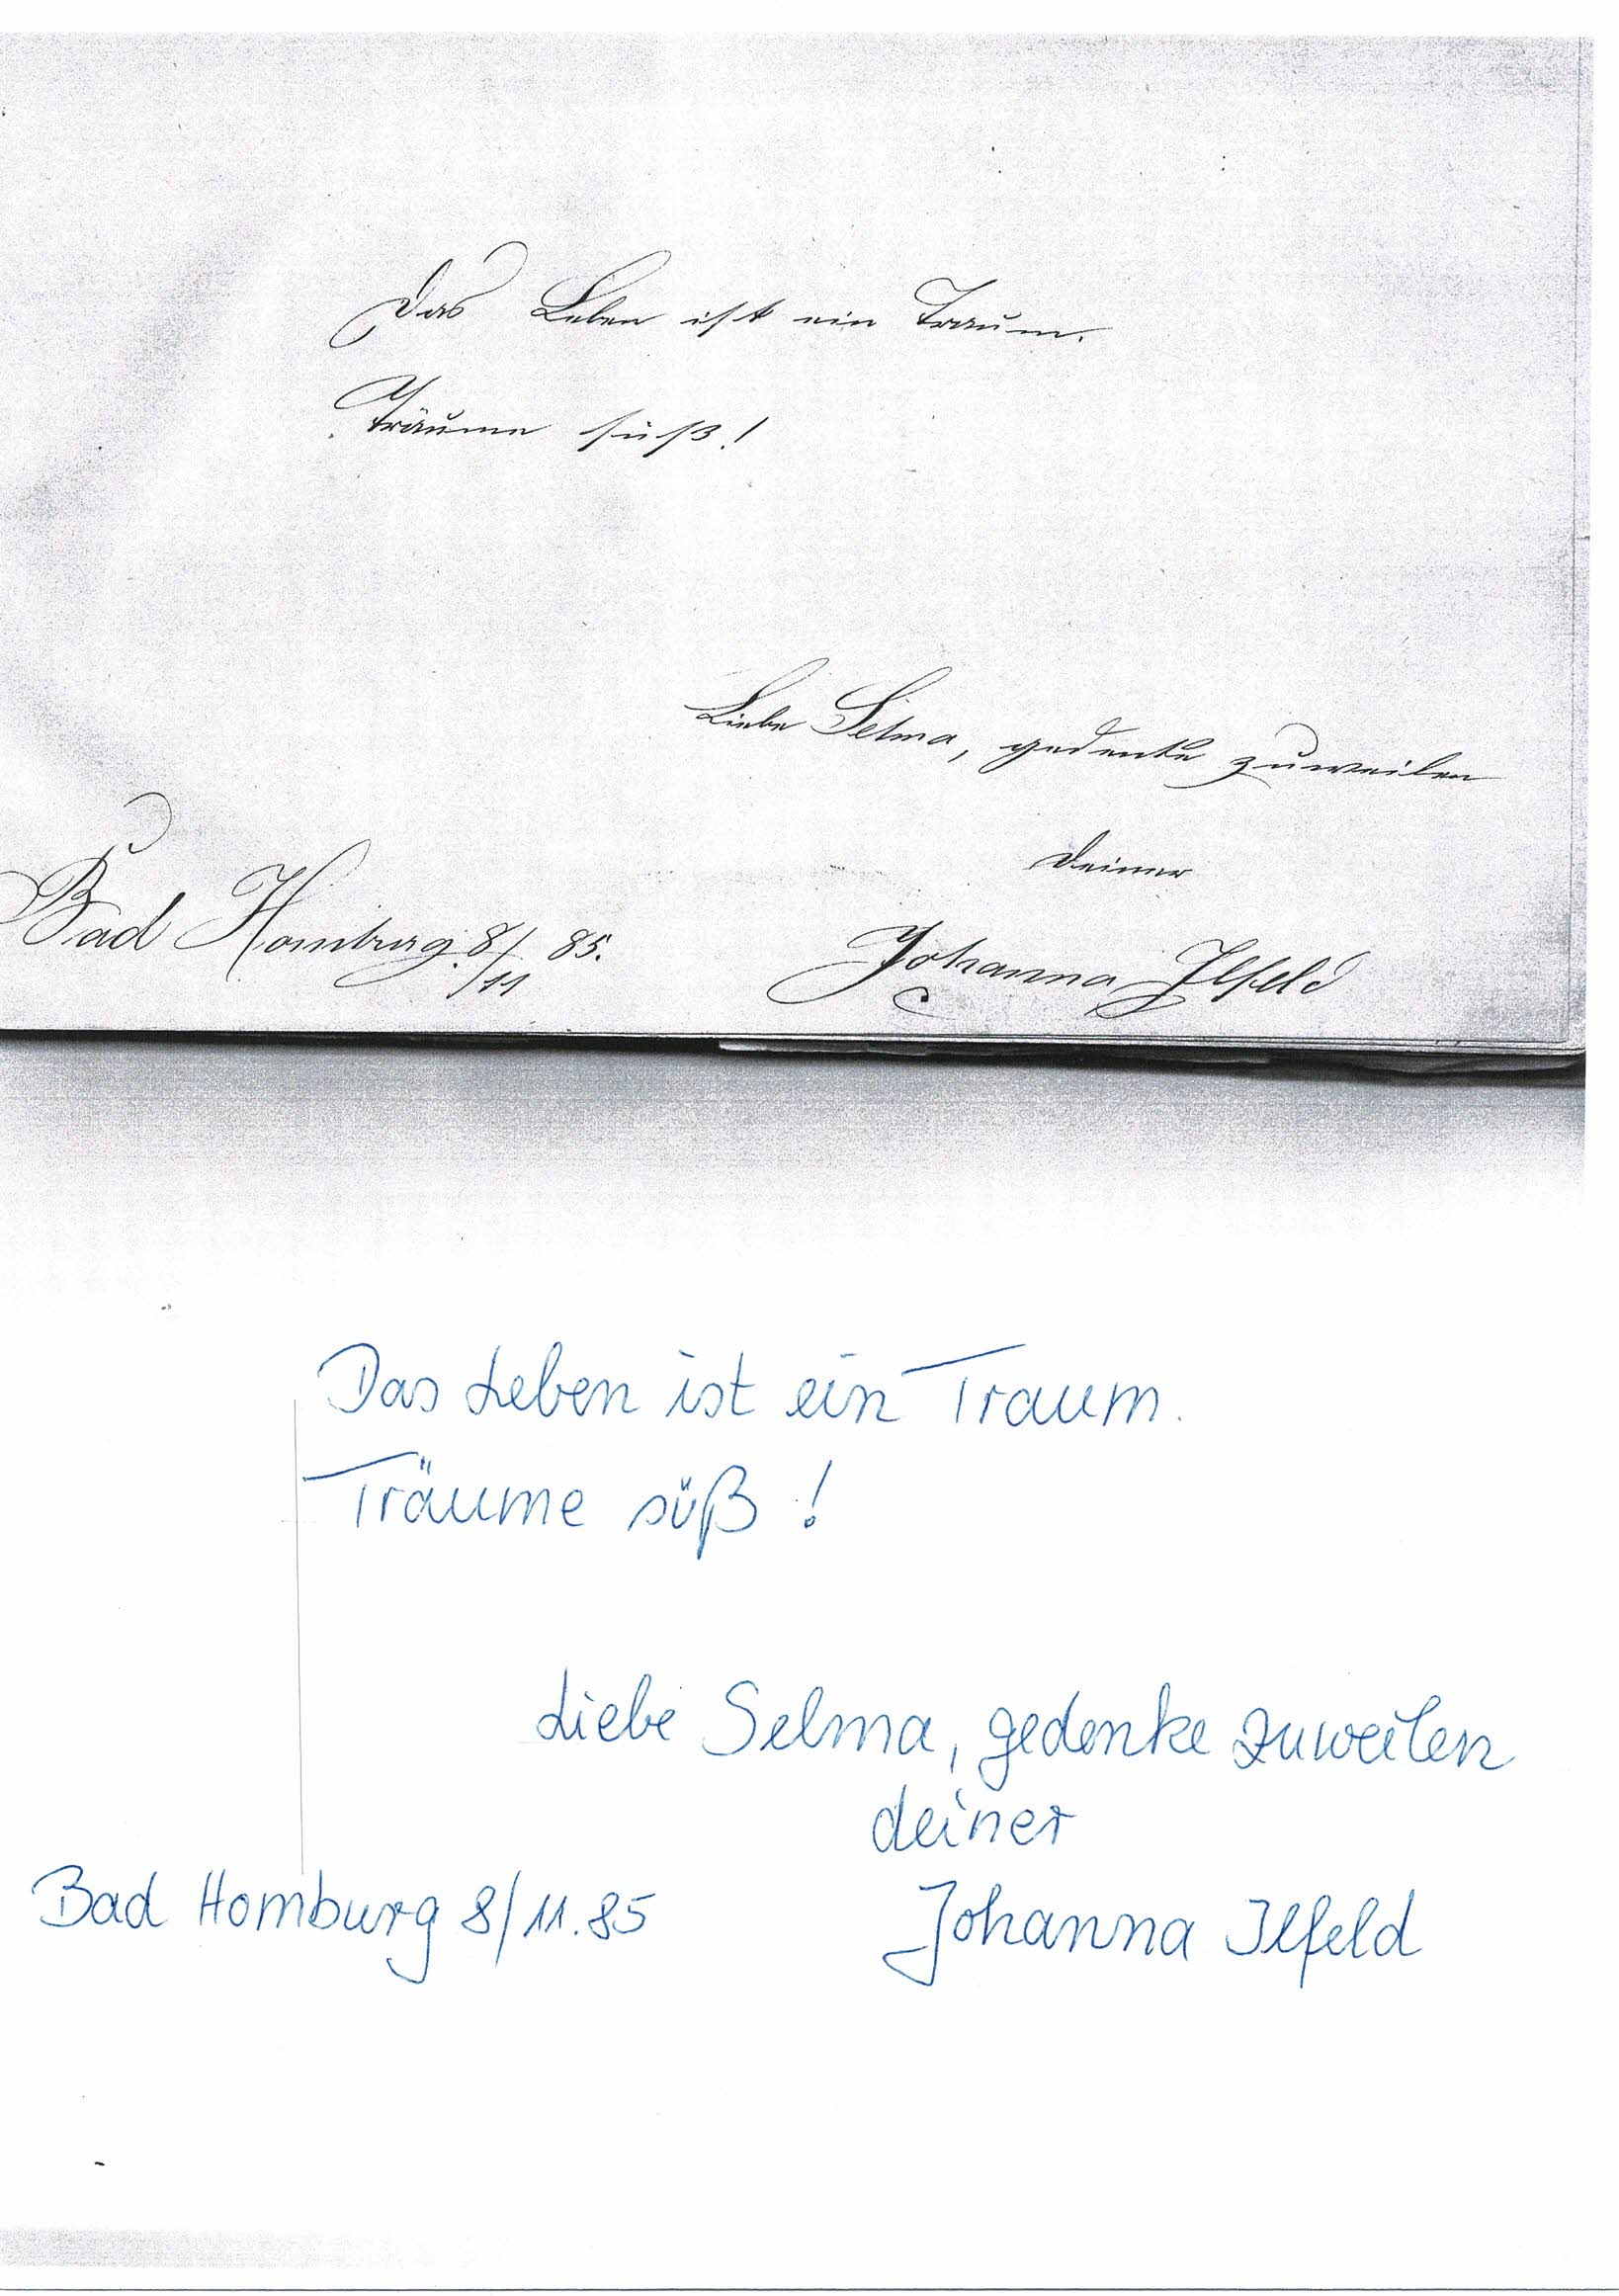 Das Leben ist ein Traum.
Träume süß!
Liebe Selma, gedenke zuweilen
deiner
Bad Homburg 8/11 85.
Johanna Ilfeld
Das Leben ist ein Traum.
Träume süß!
Liebe Selma, gedenke zuweilen
deiner
Bad Homburg 8/11.85
Johanna Ilfeld